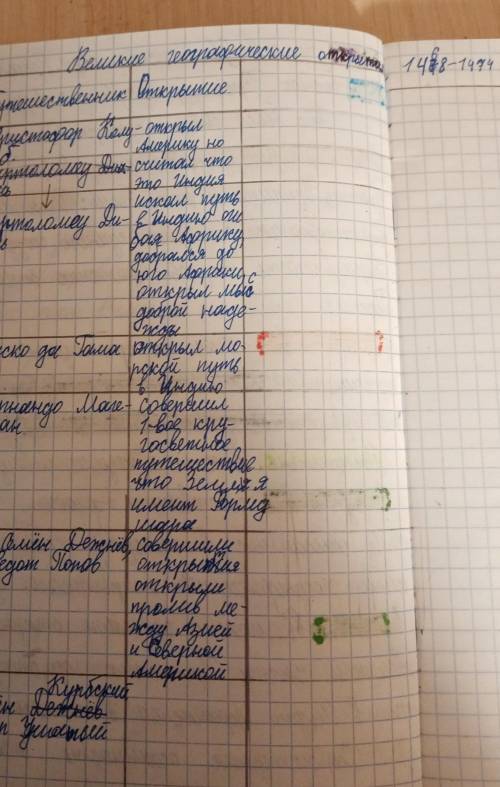 Великие географические открытия
1468-1474
тешественник Открытие
ристофор Колу- открыл
б. Америку но
ртоломеу считал что
это Индия
искал путь
ртоломеу Ди- в Индию оги
бая Африку,
добрался до
юга Африки,
открыл мыс
доброй наде-
жды
ско да Гама открыл мо-
рской путь
в Индию
рнандо Маге- совершил
ан 1-вое кру-
госветное
путешествие
что Земля
имеет форму
шара
Семён Дежнёв, совершили
едот Попов открытия
открыли
пролив ме-
жду Азией
и Северной
Америкой
Курбский
ён Дежнёв
Ушатый